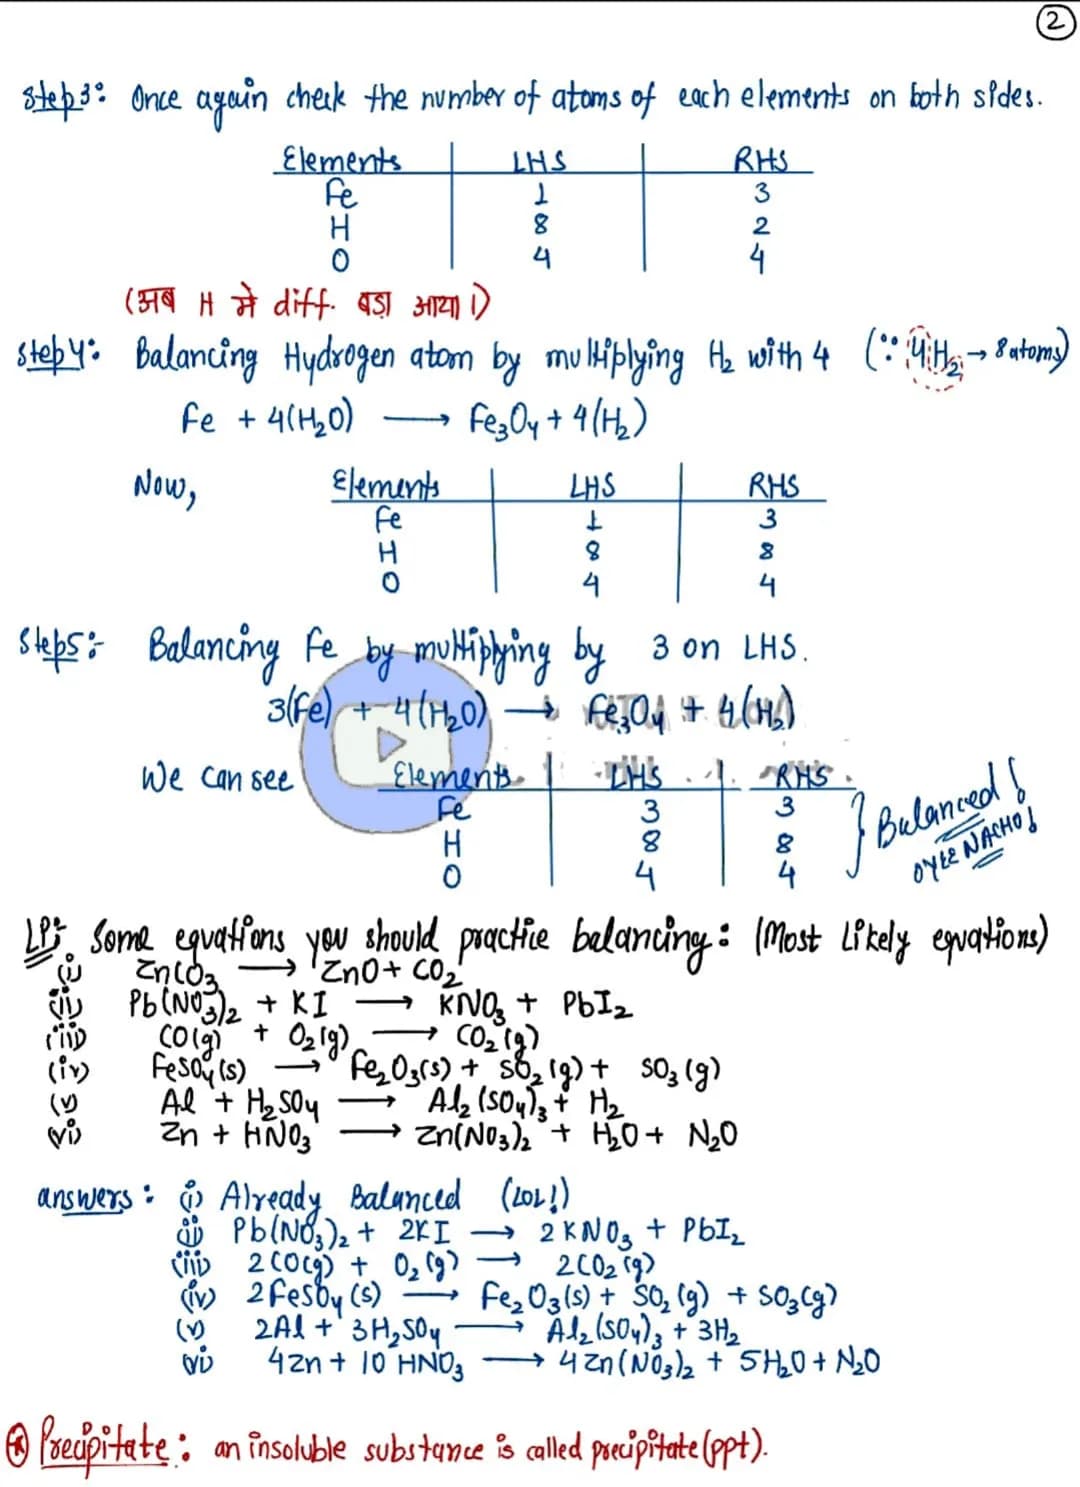 2
Step3: Once again check the number of atoms of each elements on both sides.
Elements LHS RHS
Fe 1 3
H 8 2
O 4 4
(अब H मे diff. बड़ा आया।)
Step4: Balancing Hydrogen atom by multiplying H₂ with 4 (∵ 4H₂ → 8 atoms)
Fe + 4(H₂O) ⟶ Fe₃O₄ + 4(H₂)
Now, Elements LHS RHS
Fe 1 3
H 8 8
O 4 4
Step5:- Balancing Fe by multiplying by 3 on LHS.
3(Fe) + 4(H₂O) ⟶ Fe₃O₄ + 4(H₂)
We can see Elements LHS RHS
Fe 3 3
H 8 8
O 4 4
} Balanced!
OYEE NACHO!
LP:- Some equations you should practice balancing: (Most Likely equations)
(i) ZnCO₃ ⟶ ZnO + CO₂
(ii) Pb(NO₃)₂ + KI ⟶ KNO₃ + PbI₂
(iii) CO(g) + O₂(g) ⟶ CO₂(g)
(iv) FeSO₄(s) ⟶ Fe₂O₃(s) + SO₂(g) + SO₃(g)
(v) Al + H₂SO₄ ⟶ Al₂(SO₄)₃ + H₂
(vi) Zn + HNO₃ ⟶ Zn(NO₃)₂ + H₂O + N₂O
answers: (i) Already Balanced (LOL!)
(ii) Pb(NO₃)₂ + 2KI ⟶ 2KNO₃ + PbI₂
(iii) 2CO(g) + O₂(g) ⟶ 2CO₂(g)
(iv) 2FeSO₄(s) ⟶ Fe₂O₃(s) + SO₂(g) + SO₃(g)
(v) 2Al + 3H₂SO₄ ⟶ Al₂(SO₄)₃ + 3H₂
(vi) 4Zn + 10 HNO₃ ⟶ 4Zn(NO₃)₂ + 5H₂O + N₂O
Precipitate: an insoluble substance is called precipitate (ppt).